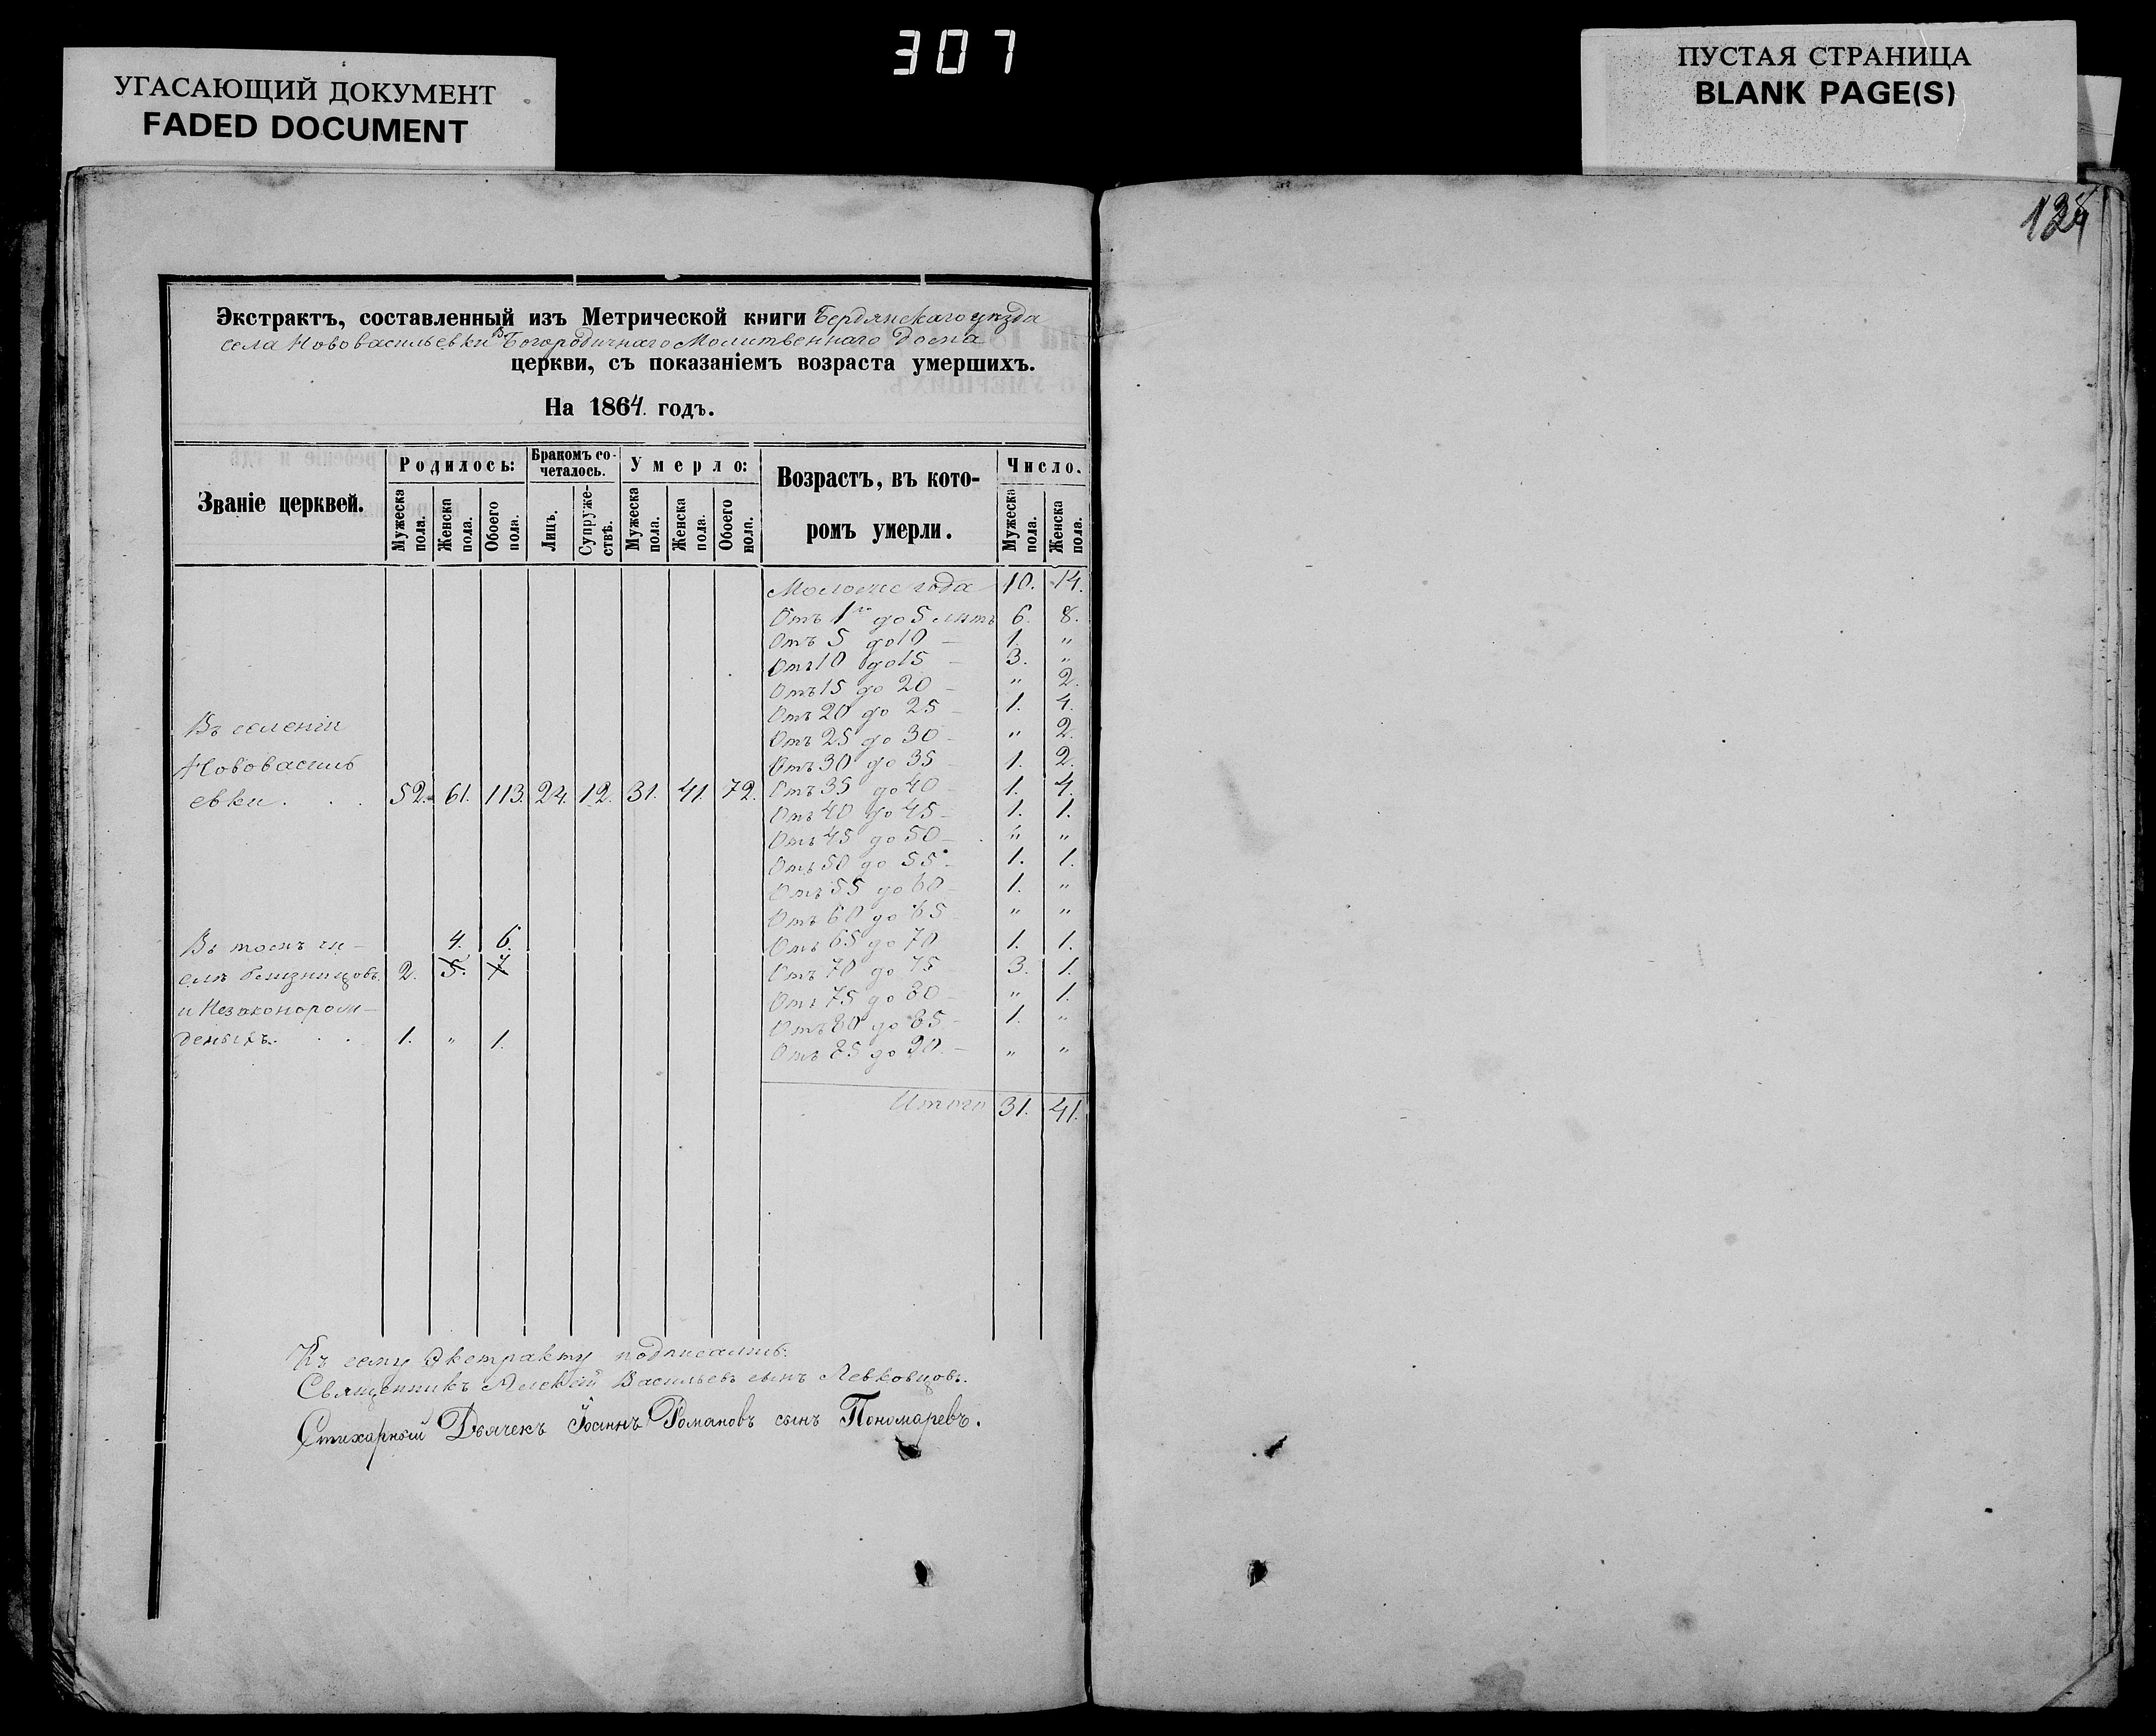 307
УГАСАЮЩИЙ ДОКУМЕНТ
FADED DOCUMENT
ПУСТАЯ СТРАНИЦА
BLANK PAGE(S)
Экстрактъ, составленный изъ Метрической книги Бердянскаго уѣзда
села Нововасильевки Богородичнаго Молитвеннаго Дома
церкви, съ показаніемъ возраста умершихъ.
На 1864. годъ.
Званіе церквей.
Родилось:
Мужеска пола.
Женска пола.
Обоего пола.
Бракомъ со-
четалось.
Лицъ.
Супруже-
ствъ.
Умерло:
Мужеска пола.
Женска пола.
Обоего пола.
Возрастъ, въ кото-
ромъ умерли.
Число.
Мужеска пола.
Женска пола.
Моложе года 10. 14.
Отъ 1го до 5 лѣтъ 6. 8.
Отъ 5 до 10 – 1. „
Отъ 10 до 15 – 3. „
Отъ 15 до 20 – „ 2.
Отъ 20 до 25 – 1. 4.
Отъ 25 до 30 – „ 2.
Отъ 30 до 35 – 1. 2.
Отъ 35 до 40 – 1. 4.
Отъ 40 до 45 – 1. 1.
Отъ 45 до 50 – „ „
Отъ 50 до 55 – 1. 1.
Отъ 55 до 60 – 1. „
Отъ 60 до 65 – „ „
Отъ 65 до 70 1. 1.
Отъ 70 до 75 3. 1.
Отъ 75 до 80 – „ 1.
Отъ 80 до 85 – 1. „
Отъ 85 до 90. – „ „
Итого 31. 41.
Въ селеніи
Нововасиль
евки . . . 52. 61. 113. 24. 12. 31. 41. 72.
Въ томъ чи-
4. 6.
слѣ близнецовъ. 2. 5. 7
и Незаконорож-
деныхъ. . . 1. „ 1.
Къ сему Экстракту подписались:
Священникъ Алексій Васильевъ сынъ Левковцовъ.
Стихарный Дьячекъ Іоаннъ Романовъ сынъ Пономаревъ.